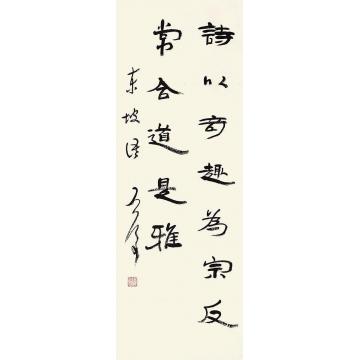 詩以奇趣為宗反
常合道是雅
東坡語